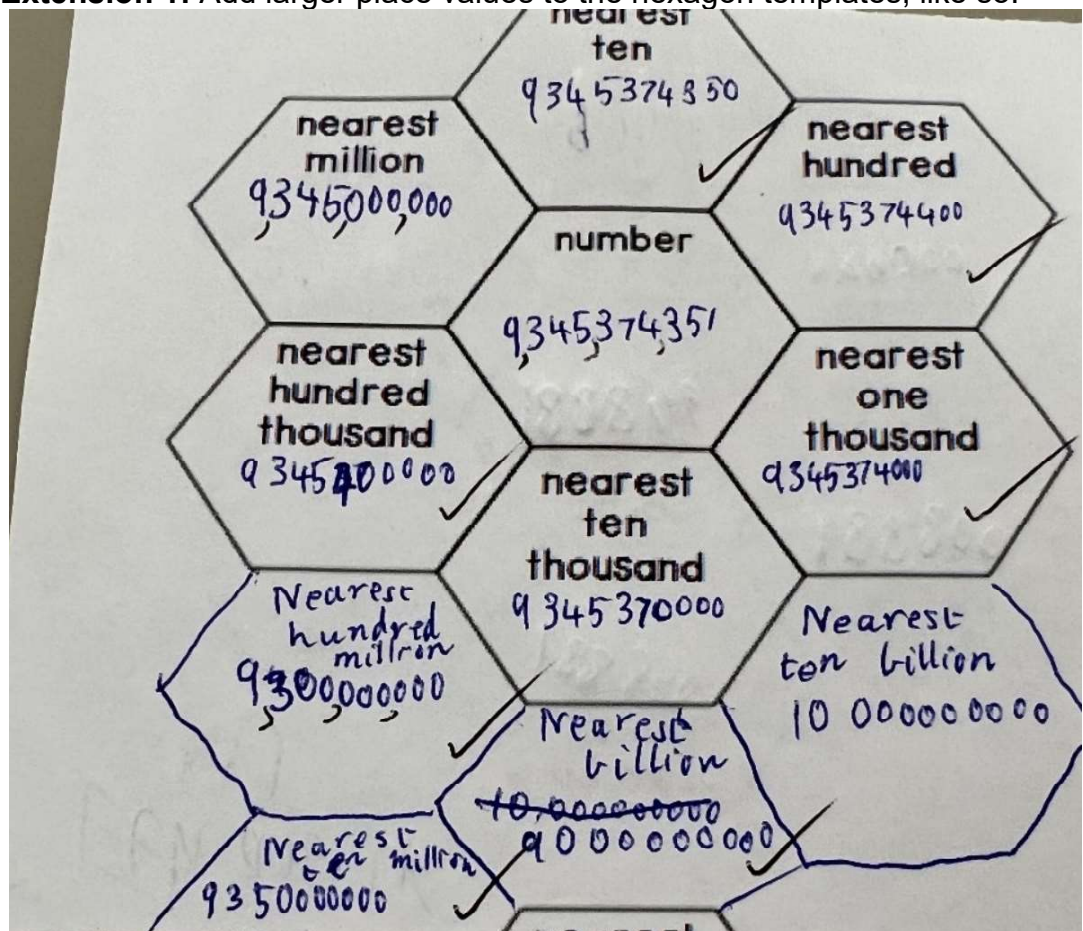 Add larger place values to the hexagon templates, like so:
nearest
ten
9345374350
nearest
million
9,345,000,000
nearest
hundred
9345374400
number
9,345,374,351
nearest
hundred
thousand
9345400000
nearest
one
thousand
9345374000
nearest
ten
thousand
9345370000
Nearest
hundred
million
9,300,000,000
Nearest
ten billion
10 000000000
Nearest
billion
10,000000000
9000000000
Nearest
ten million
9350000000